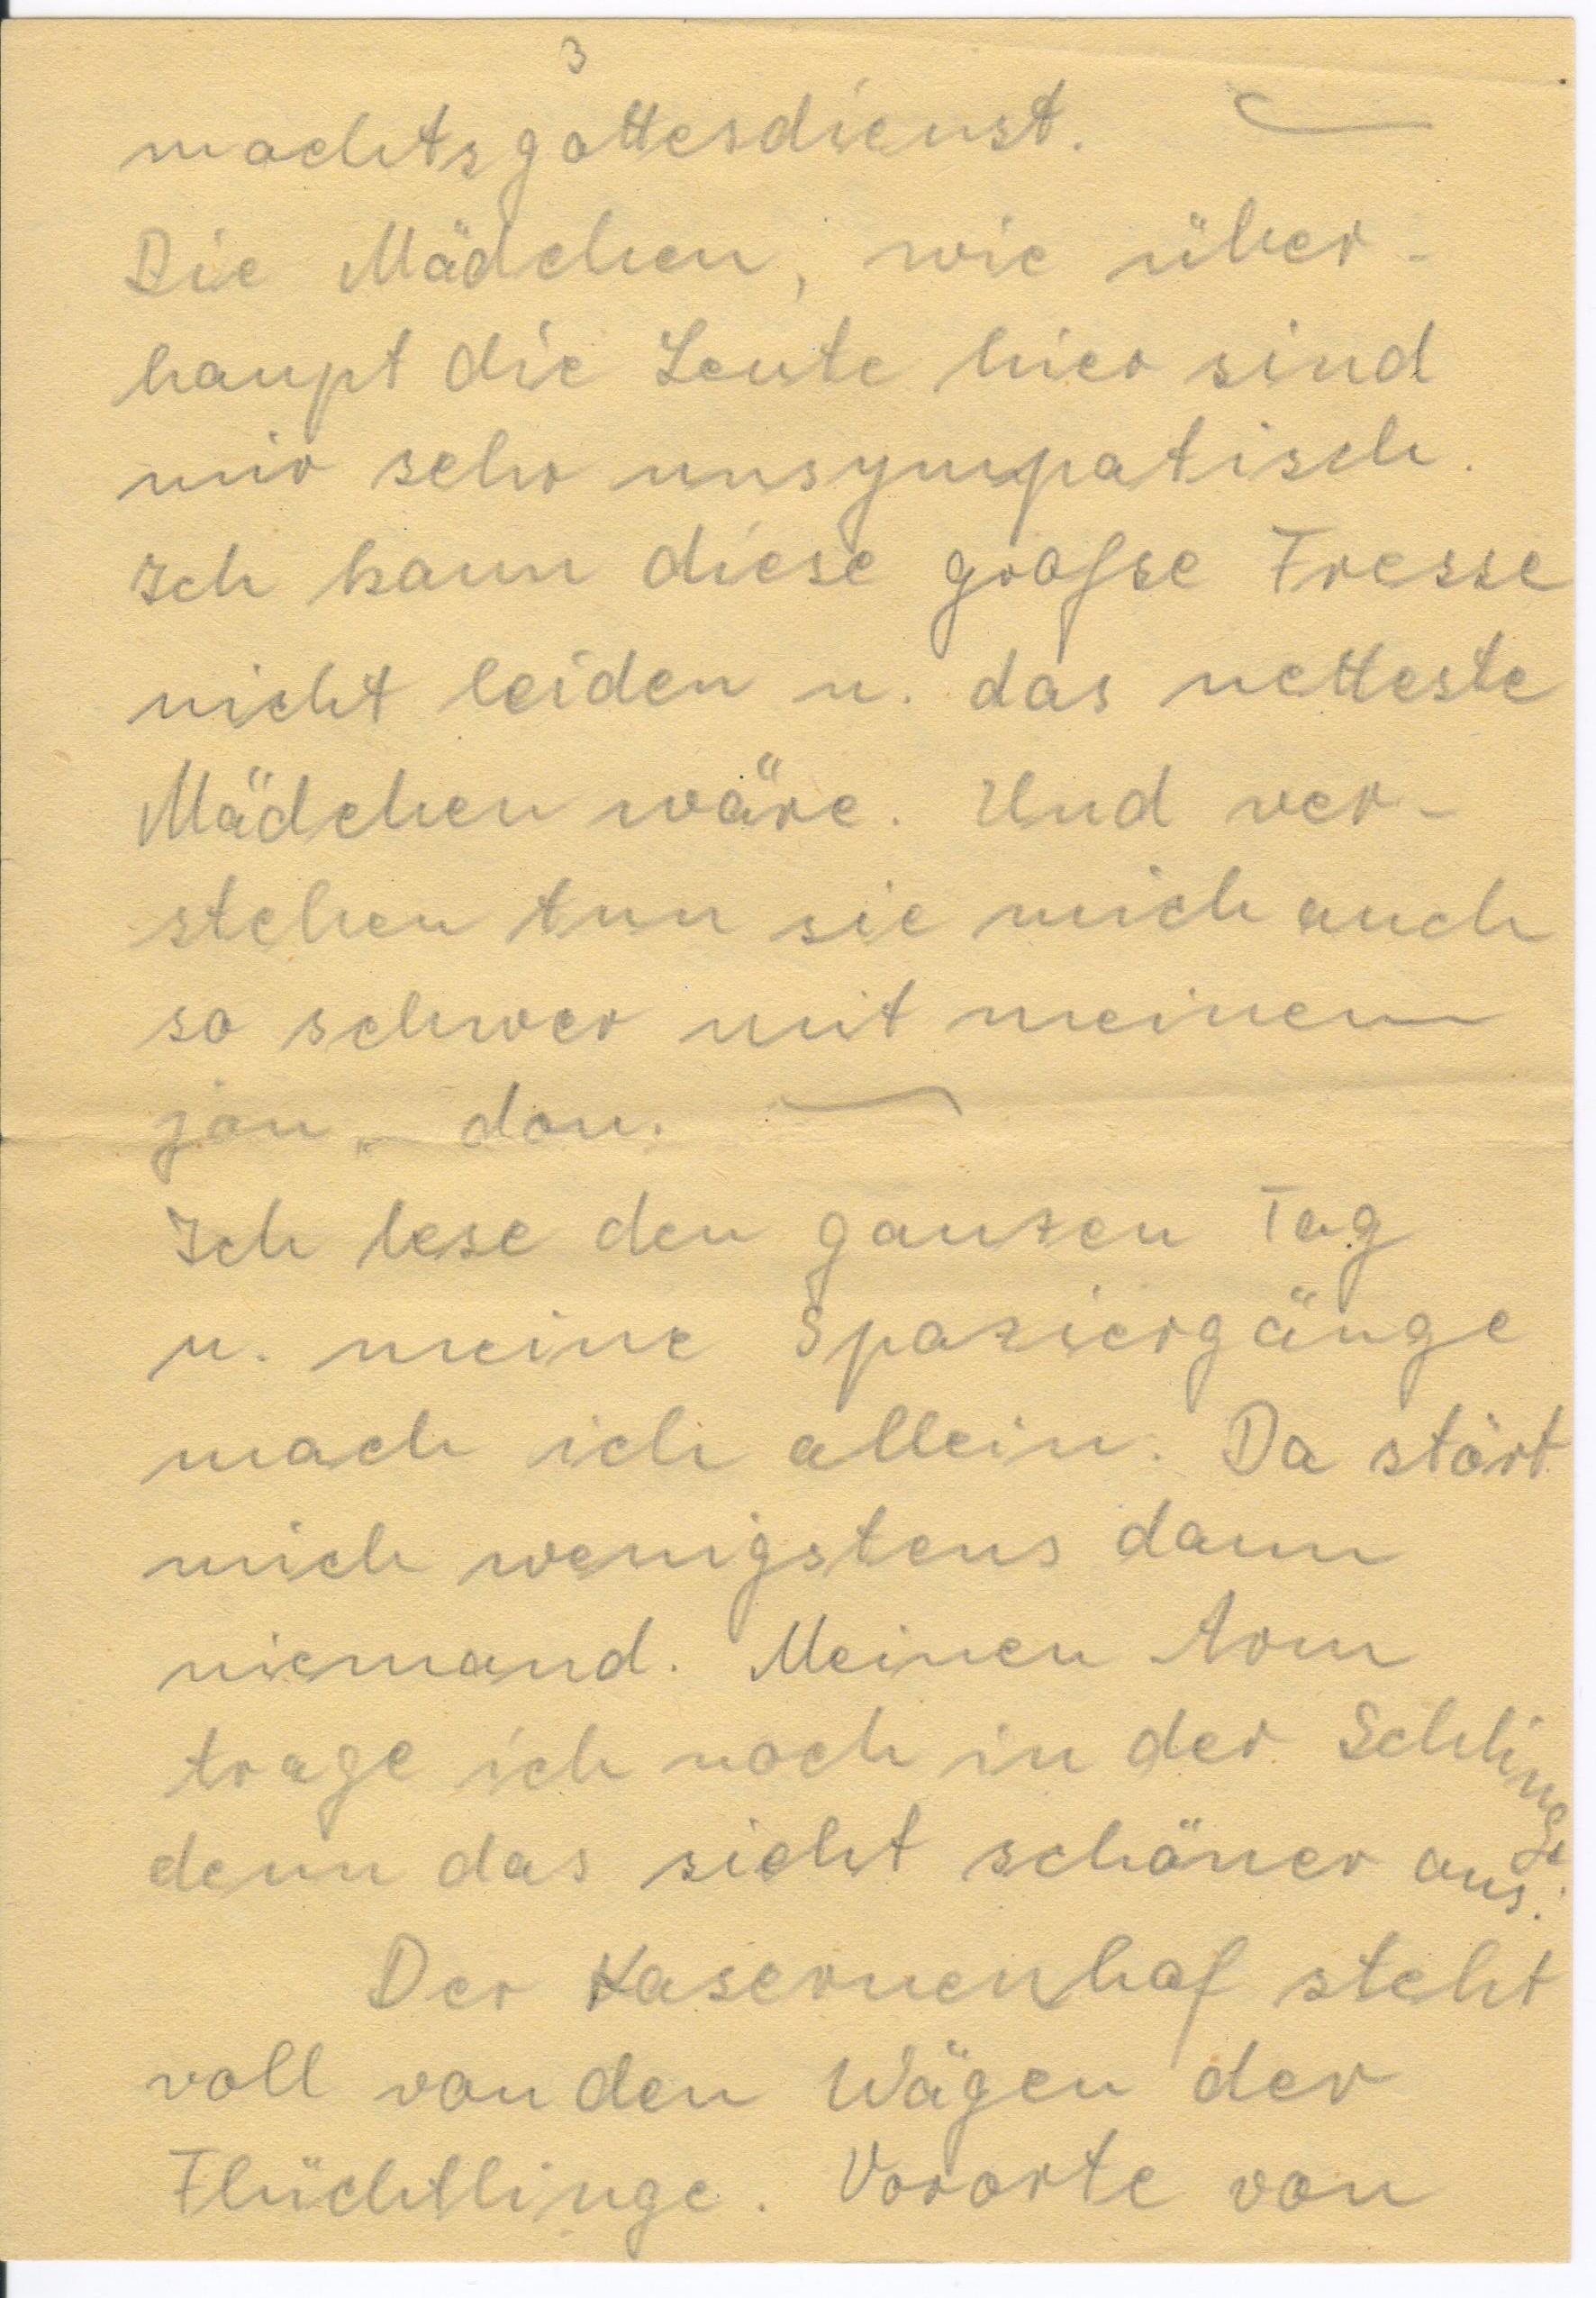 3
machtsgottesdienst.
Die Mädchen, wie über-
haupt die Leute hier sind
mir sehr unsympatisch.
Ich kann diese große Fresse
nicht leiden u. das netteste
Mädchen wäre. Und ver-
stehen tun sie mich auch
so schwer mit meinem
jon, don.
Ich lese den ganzen Tag
u. meine Spaziergänge
mach ich allein. Da stört
mich wenigstens dann
niemand. Meinen Arm
trage ich noch in der Schlinge
denn das sieht schöner aus.
Der Kasernenhof steht
voll von den Wägen der
Flüchtlinge. Vororte von